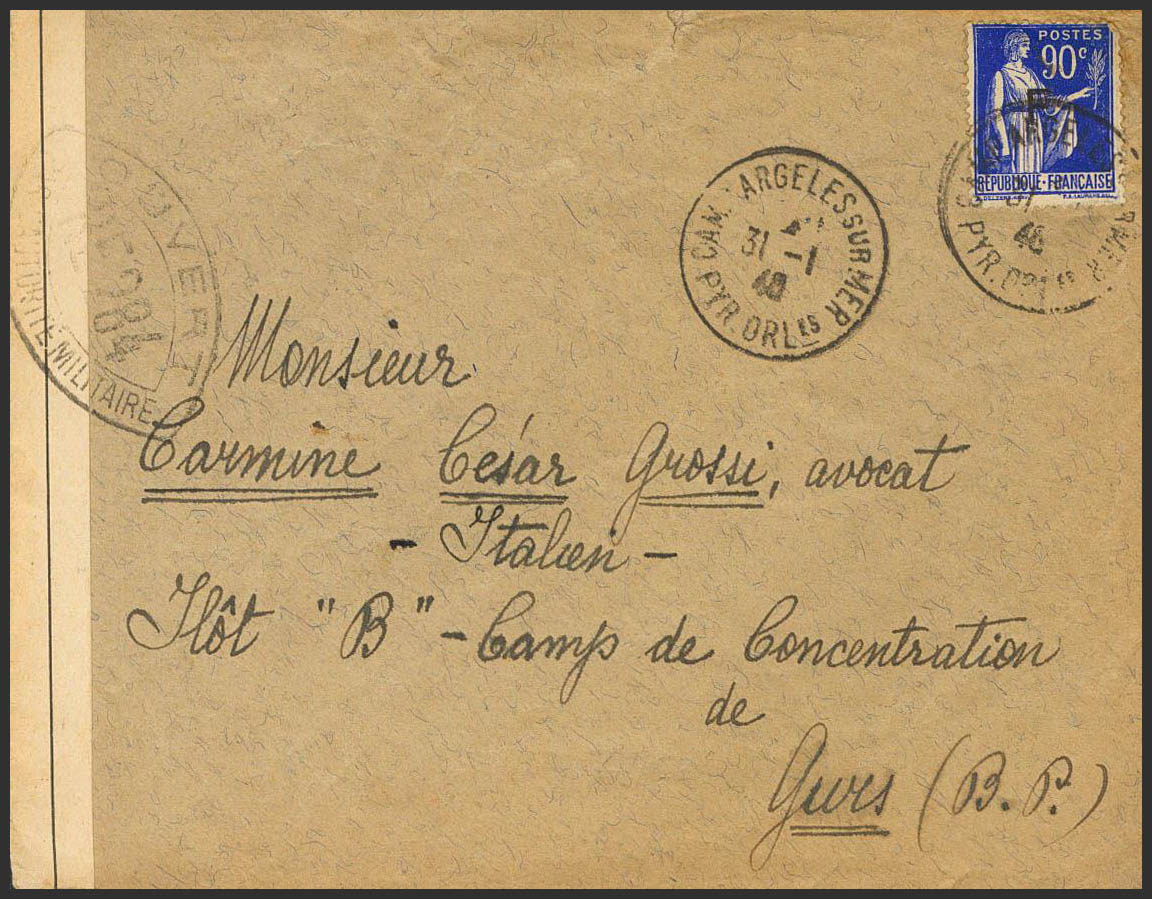 POSTES
90c
F
RÉPUBLIQUE·FRANÇAISE
CAMP ARGELES SUR MER
31 -1
40
PYR. ORLES
CAMP ARGELES SUR MER
31
40
PYR. ORLES
OUVERT
984
CONTROLE MILITAIRE
Monsieur
Carmine César Grossi, avocat
- Italien -
Ilôt "B" - Camp de Concentration
de
Gurs (B. P.)